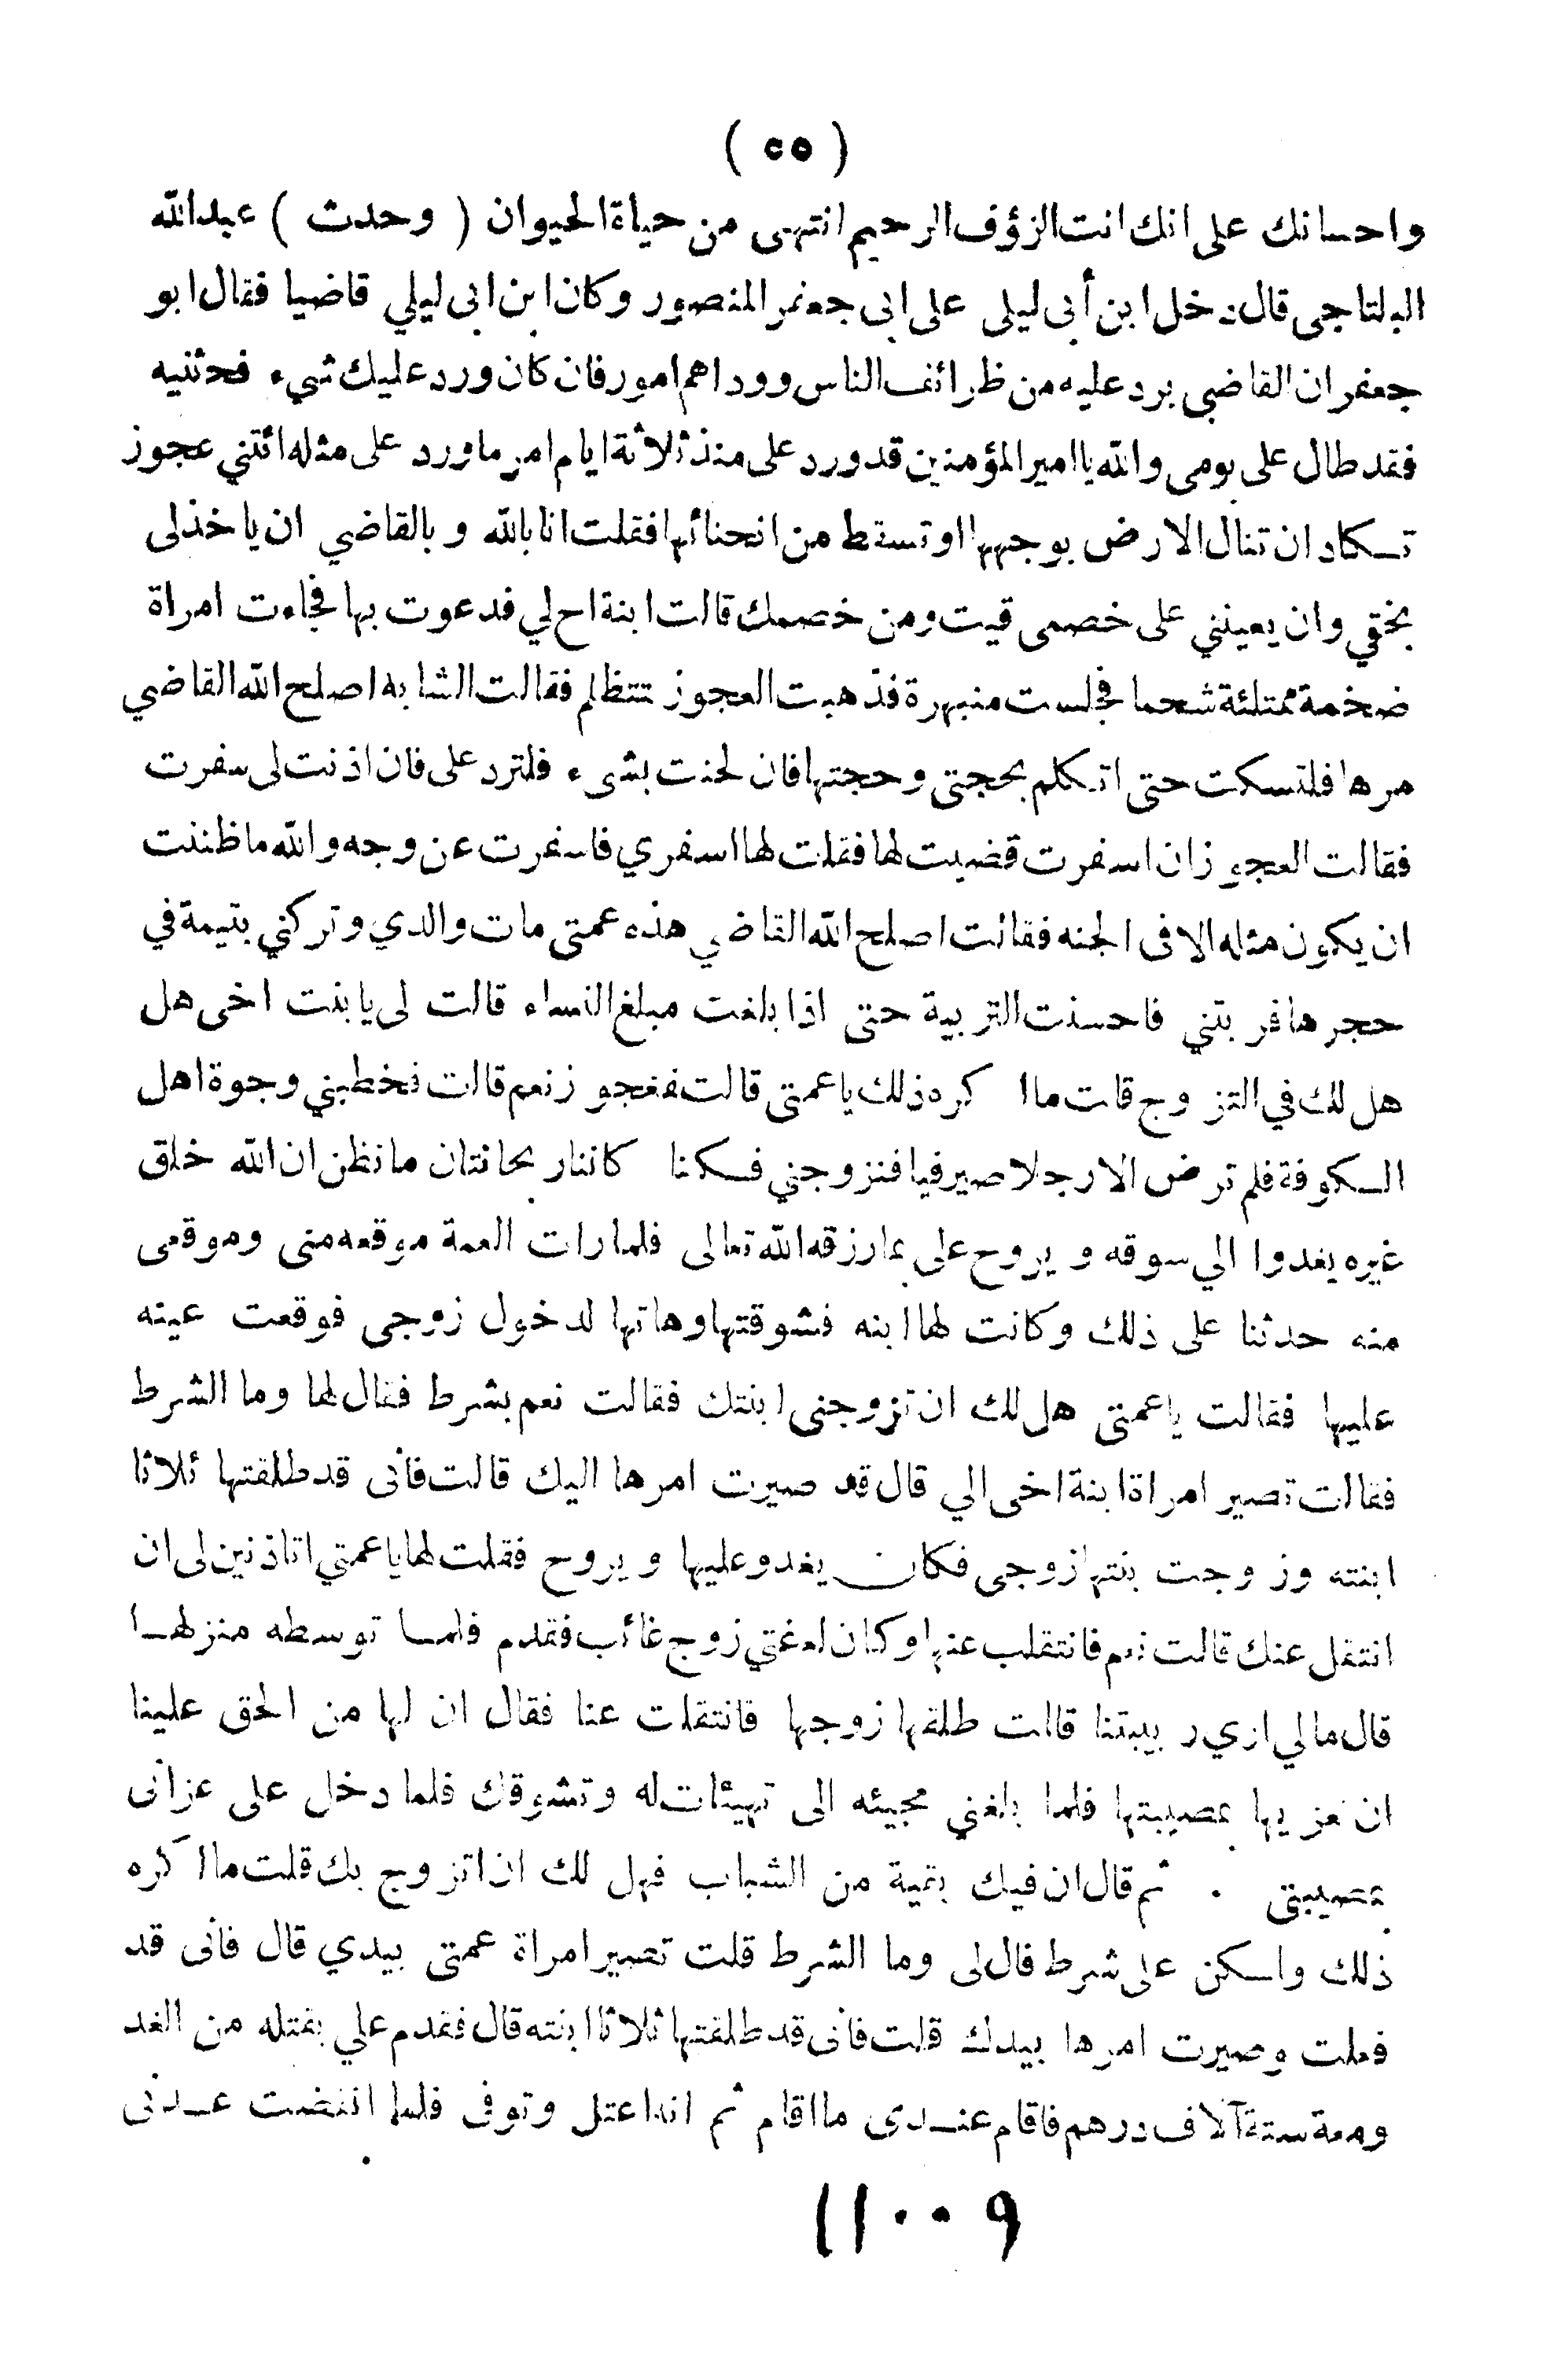 ( ٥٥ )
واحسانك على انك انت الرؤف الرحيم انتهى من حياة الحيوان ( وحدث ) عبدالله
البلتاجى قال دخل ابن أبى ليلى على ابى جعفر المنصور وكان ابن ابى ليلي قاضيا فقال ابو
جعفر ان القاضي يرد عليه من ظرائف الناس وود اهم امور فان كان ورد عليك شيء فحدثنيه
فقد طال على يومى والله يا امير المؤمنين قد ورد على منذ ثلاثة ايام امر ماورد على مثله ائتني عجوز
تكاد ان تنال الارض بوجهها او تسقط من انحنائها فقلت انا بالله و بالقاضي ان ياخذلى
بحقي وان يعينني على خصمى قيت ومن خصمك قالت ابنة اح لي فدعوت بها فجاءت امراة
ضخمة ممتلئة شحما فجلست منبهرة فذهبت العجوز تتظلم فقالت الشابه اصلح الله القاضي
مرها فلتسكت حتى اتكلم بحجتى وحجتها فان لحنت بشىء فلترد على فان اذنت لى سفرت
فقالت العجوزان اسفرت قضيت لها فقلت لها اسفري فاسفرت عن وجه والله ما ظننت
ان يكون مثله الا فى الجنه فقالت اصلح الله القاضي هذه عمتى مات والدي وتركني يتيمة في
حجرها فر بتني فاحسنت التربية حتى اذا بلغت مبلغ النساء قالت لى يا بنت اخى هل
هل لك في التزوج قلت ما اكره ذلك يا عمتى قالت فعجوز نعم قالت فخطبني وجوة اهل
الكوفة فلم ترض الا رجلا صيرفيا فتزوجني فكنا كاننار يحانتان ما نظن ان الله خلق
غيره يغدوا الي سوقه و يروح على بما رزقه الله تعالى فلما رات العمة موقعه منى وموقعى
منه حدثنا على ذلك وكانت لها ابنه فشوقتها وهاتها لدخول زوجى فوقعت عينه
عليها فقالت ياعمتى هل لك ان تزوجنى ابنتك فقالت نعم بشرط فقال لها وما الشرط
فقالت تصير امراة ابنة اخى الي قال قد صيرت امرها اليك قالت فأنى قد طلقتها ثلاثا
ابنته وزوجت بنتها زوجى فكان يغدو عليها و يروح فقلت لها ياعمتي اتاذنين لى ان
انتقل عنك قالت نعم فانتقلب عنها وكان لعمتي زوج غائب فقدم فلما توسطه منزلها
قال مالي ازي ربيبتنا قالت طلقها زوجها فانتقلت عنا فقال ان لها من الحق علينا
ان نعزيها بمصيبتها فلما بلغني مجيئه الى تهيئات له وتشوقت فلما دخل على عزانى
بمصيبتى . ثم قال ان فيك بقية من الشباب فهل لك ان اتزوج بك قلت ما اكره
ذلك ولكن على شرط قال لى وما الشرط قلت تصير امراة عمتى بيدي قال فأنى قد
فعلت وصيرت امرها بيدك قلت فأنى قد طلقتها ثلاثا ابنته قال فقدم علي بثقله من الغد
ومعة ستة آلاف درهم فاقام عندى ما اقام ثم انه اعتل وتوفى فلما انقضت عدتى
١١٠٠٩